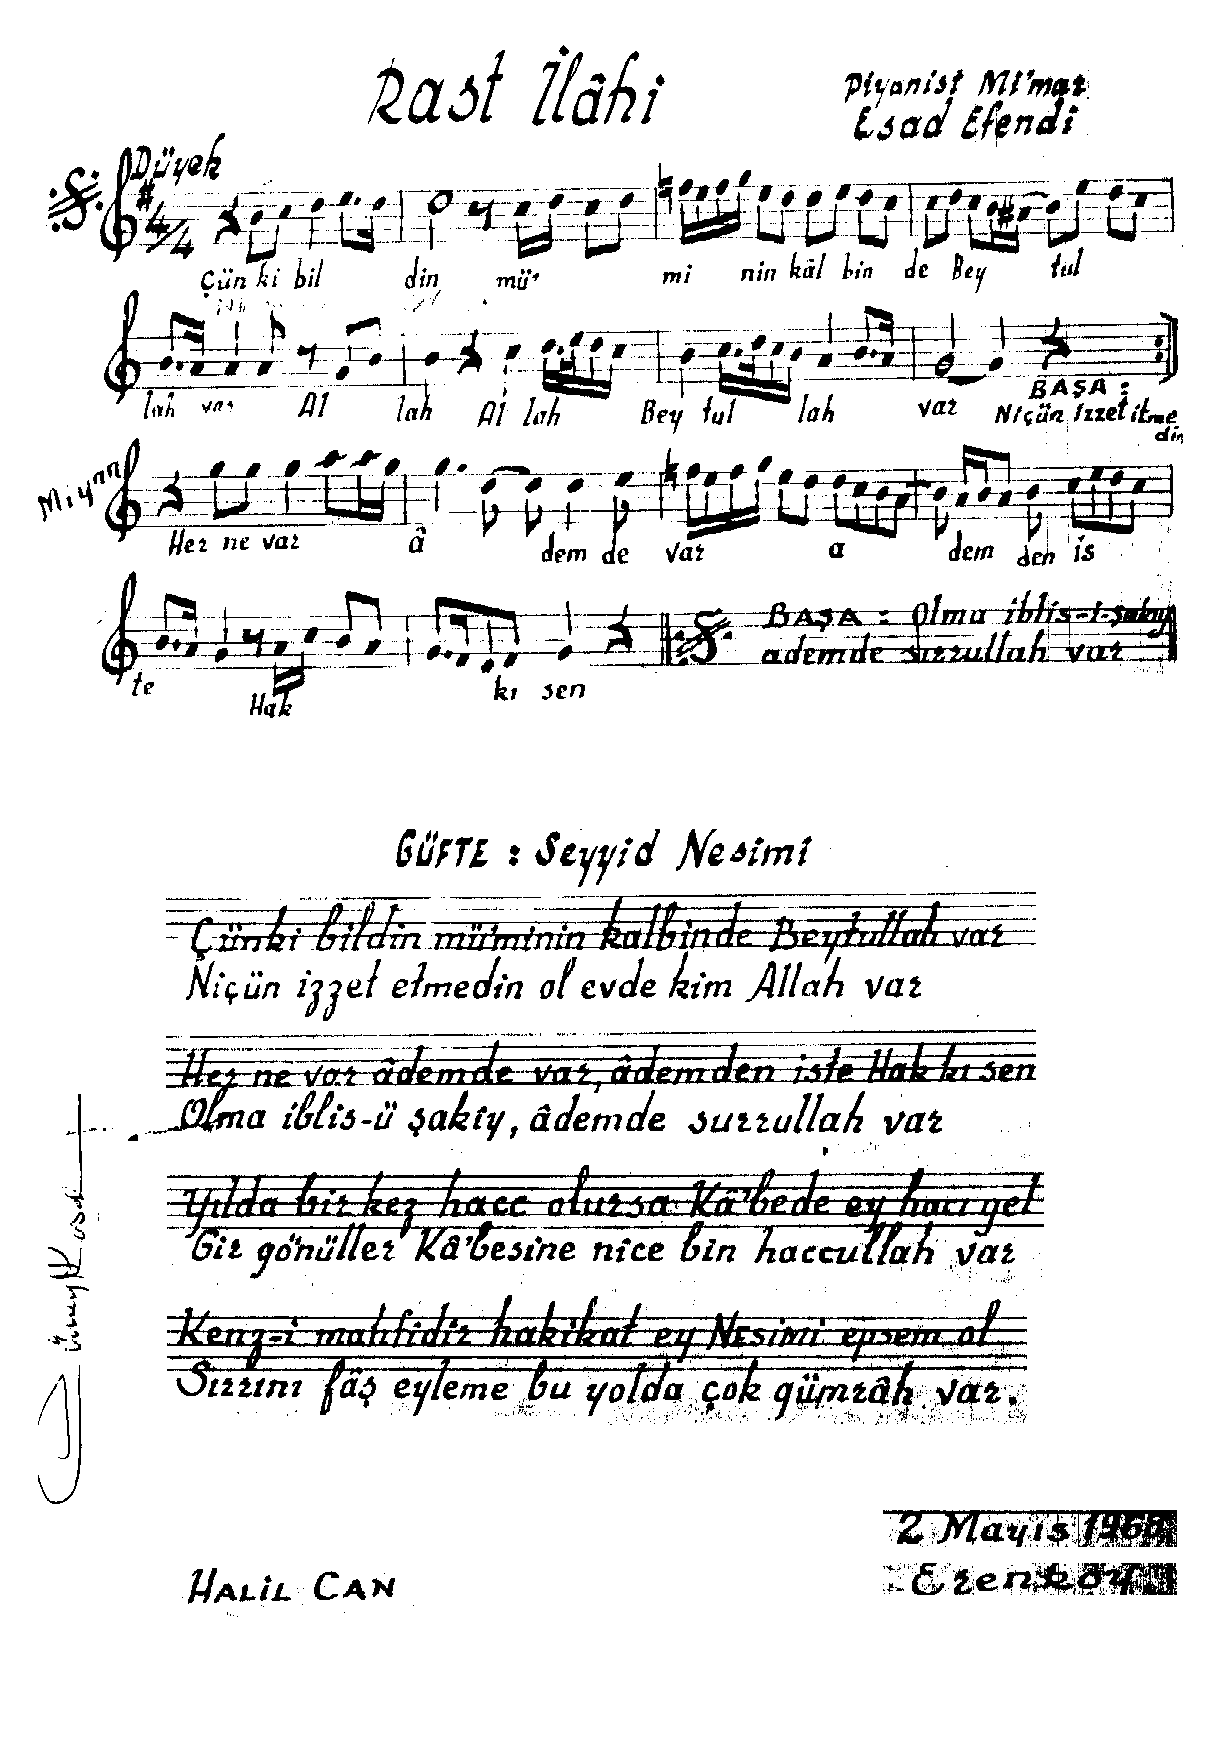 Rast İlâhi
Piyanist Mi'mar
Esad Efendi
Düyek
4/4
Çün ki bil din mü' mi nin kâl bin de Bey tul
lah var Al lah Al lah Bey tul lah var
BAŞA :
Niçün izzet itme
din
Miyan
Her ne var â dem de var a dem den is
te Hak kı sen
BAŞA : Olma iblis-i-şakıy
ademde sırrullah var
GÜFTE : Seyyid Nesimi
Çünki bildin mü'minin kalbinde Beytullah var
Niçün izzet etmedin ol evde kim Allah var
Her ne var âdemde var, âdemden iste Hak kı sen
Olma iblis-ü şakiy, âdemde surrullah var
Yılda bir kez hacc olursa Kâ'bede ey hacı gel
Gir gönüller Kâ'besine nice bin haccullah var
Kenz-i mahfidir hakikat ey Nesimi epsem ol
Sırrını fâş eyleme bu yolda çok gümrâh var.
2 Mayis 1968
Erenköy
HALİL CAN